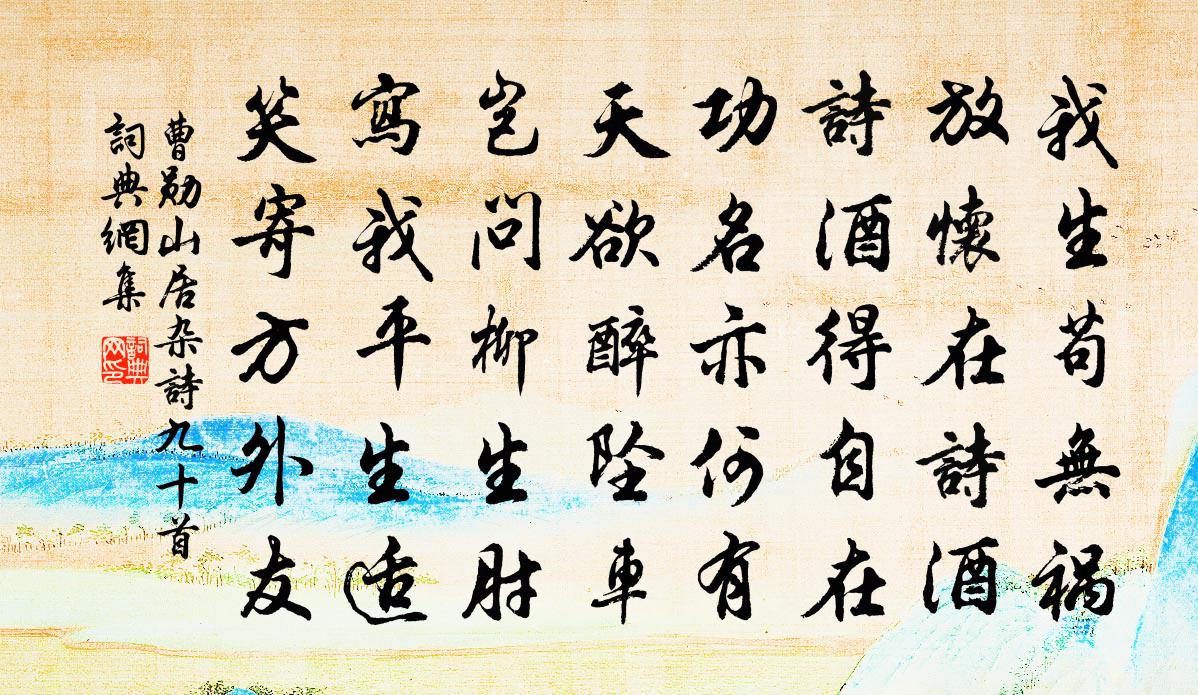 我生苟無禍
放懷在詩酒
詩酒得自在
功名亦何有
天欲醉墜車
豈問柳生肘
寫我平生适
笑寄方外友
曹勛山居杂詩九十首
詞典網集
詞典網印